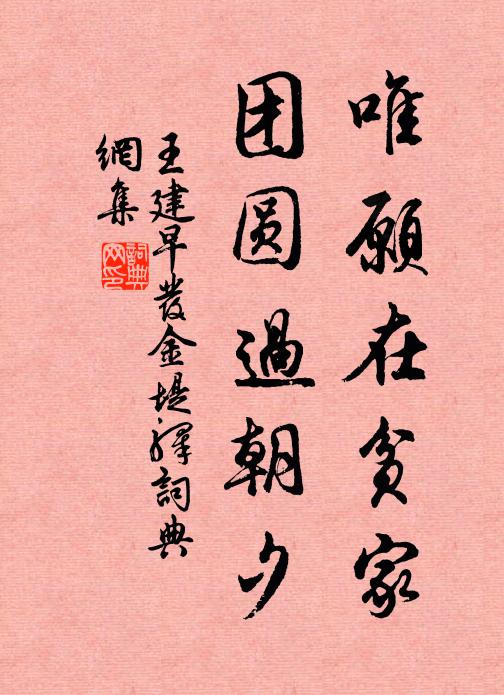 唯愿在贫家
团圆过朝夕
王建早發金堤驛詞典
網集
詞典網印